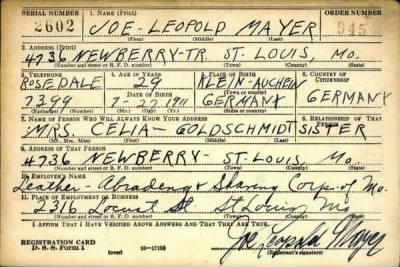 SERIAL NUMBER 1. NAME (Print) ORDER NUMBER
2602 JOE- LEOPOLD MAYER 945
(First) (Middle) (Last)
2. ADDRESS (Print)
4736 NEWBERRY-TR. ST. LOUIS, MO.
(Number and street or R. F. D. number) (Town) (County) (State)
3. TELEPHONE 4. AGE IN YEARS 5. PLACE OF BIRTH 6. COUNTRY OF CITIZENSHIP
ROSEDALE 29 KLEIN-AUCHEIN
DATE OF BIRTH (Town or county)
7399 1911 GERMANY GERMANY
(Exchange) (Number) (Mo.) (Day) (Yr.) (State or country)
7. NAME OF PERSON WHO WILL ALWAYS KNOW YOUR ADDRESS 8. RELATIONSHIP OF THAT PERSON
MRS. CELIA- GOLDSCHMIDT SISTER
(Mr., Mrs., Miss) (First) (Middle) (Last)
9. ADDRESS OF THAT PERSON
4736 NEWBERRY- ST. LOUIS, MO
(Number and street or R. F. D. number) (Town) (County) (State)
10. EMPLOYER'S NAME
Leather- Corp. of Mo.
11. PLACE OF EMPLOYMENT OR BUSINESS
2316 Locust St St Louis Mo
(Number and street or R. F. D. number) (Town) (County) (State)
I AFFIRM THAT I HAVE VERIFIED ABOVE ANSWERS AND THAT THEY ARE TRUE.
REGISTRATION CARD
D. S. S. Form 1 16-17105 Joe Leopold Mayer